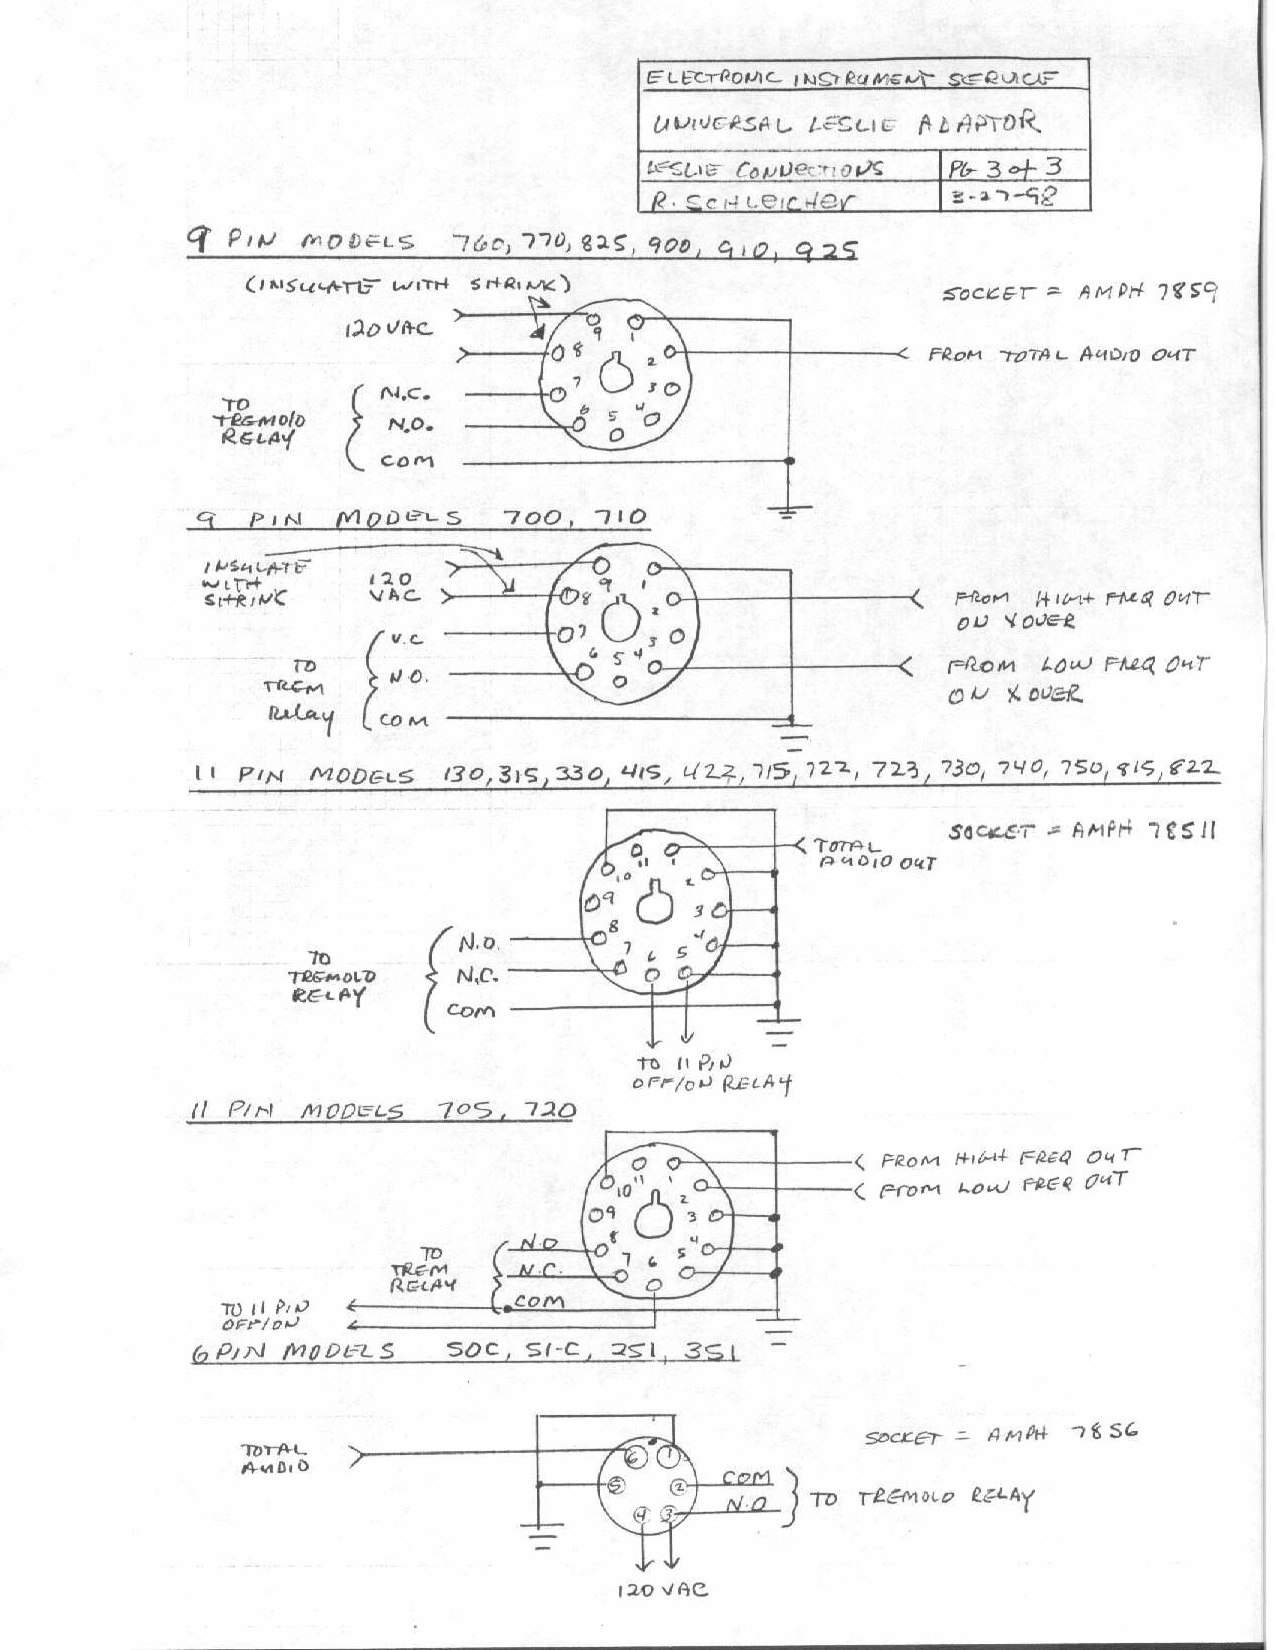 ELECTRONIC INSTRUMENT SERVICE
UNIVERSAL LESLIE ADAPTOR
LESLIE CONNECTIONS PG 3 of 3
R. SCHLEICHER 3-27-98
9 PIN MODELS 760, 770, 825, 900, 910, 925
(INSULATE WITH SHRINK)
SOCKET = AMPH 78S9
120 VAC
FROM TOTAL AUDIO OUT
TO
TREMOLO
RELAY
N.C.
N.O.
COM
9 1
8 2
7 3
6 5 4
9 PIN MODELS 700, 710
INSULATE
WITH
SHRINK
120
VAC
FROM HIGH FREQ OUT
ON XOVER
FROM LOW FREQ OUT
ON X OVER
TO
TREM
Relay
N.C
N.O.
COM
9 1
8 2
7 3
6 5 4
11 PIN MODELS 130, 315, 330, 415, 422, 715, 722, 723, 730, 740, 750, 815, 822
SOCKET = AMPH 78S11
TOTAL
AUDIO OUT
TO
TREMOLO
RELAY
N.O.
N.C.
COM
11 1
10 2
9 3
8 4
7 6 5
TO 11 PIN
OFF/ON RELAY
11 PIN MODELS 705, 720
FROM HIGH FREQ OUT
FROM LOW FREQ OUT
11 1
10 2
9 3
8 4
7 6 5
TO
TREM
RELAY
N.O
N.C.
COM
TO 11 PIN
OFF/ON
6 PIN MODELS 50C, 51-C, 251, 351
SOCKET = AMPH 78S6
TOTAL
AUDIO
6 1
5 2
4 3
COM
N.O
TO TREMOLO RELAY
120 VAC